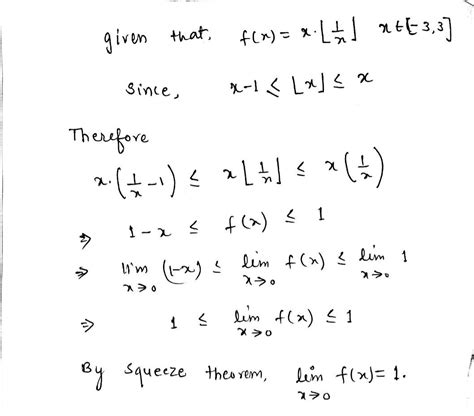 given that, f(x) = x·⌊1/x⌋ x∈[-3,3]
Since, x-1 ≤ ⌊x⌋ ≤ x
Therefore
x·(1/x -1) ≤ x⌊1/x⌋ ≤ x(1/x)
⇒ 1-x ≤ f(x) ≤ 1
⇒ lim x→0 (1-x) ≤ lim x→0 f(x) ≤ lim x→0 1
⇒ 1 ≤ lim x→0 f(x) ≤ 1
By Squeeze theorem, lim x→0 f(x)=1.